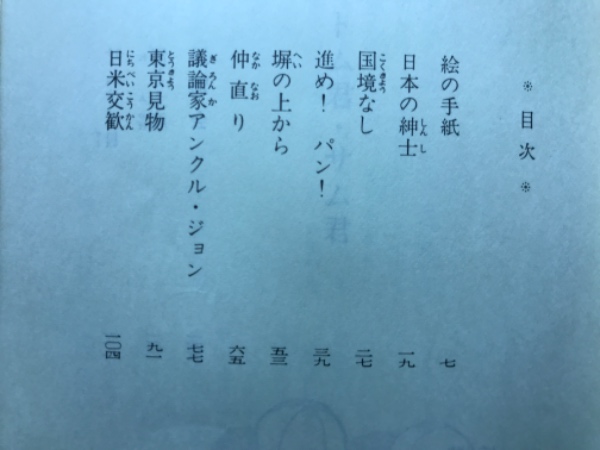 ※ 目次 ※
絵の手紙 七
日本の紳士 一九
国境なし 二七
進め！ パン！ 三九
塀の上から 五三
仲直り 六五
議論家アンクル・ジョン 七七
東京見物 九一
日米交歓 一〇四